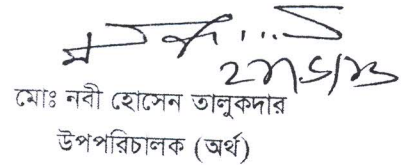 মোঃ নবী হোসেন তালুকদার
উপপরিচালক (অর্থ)